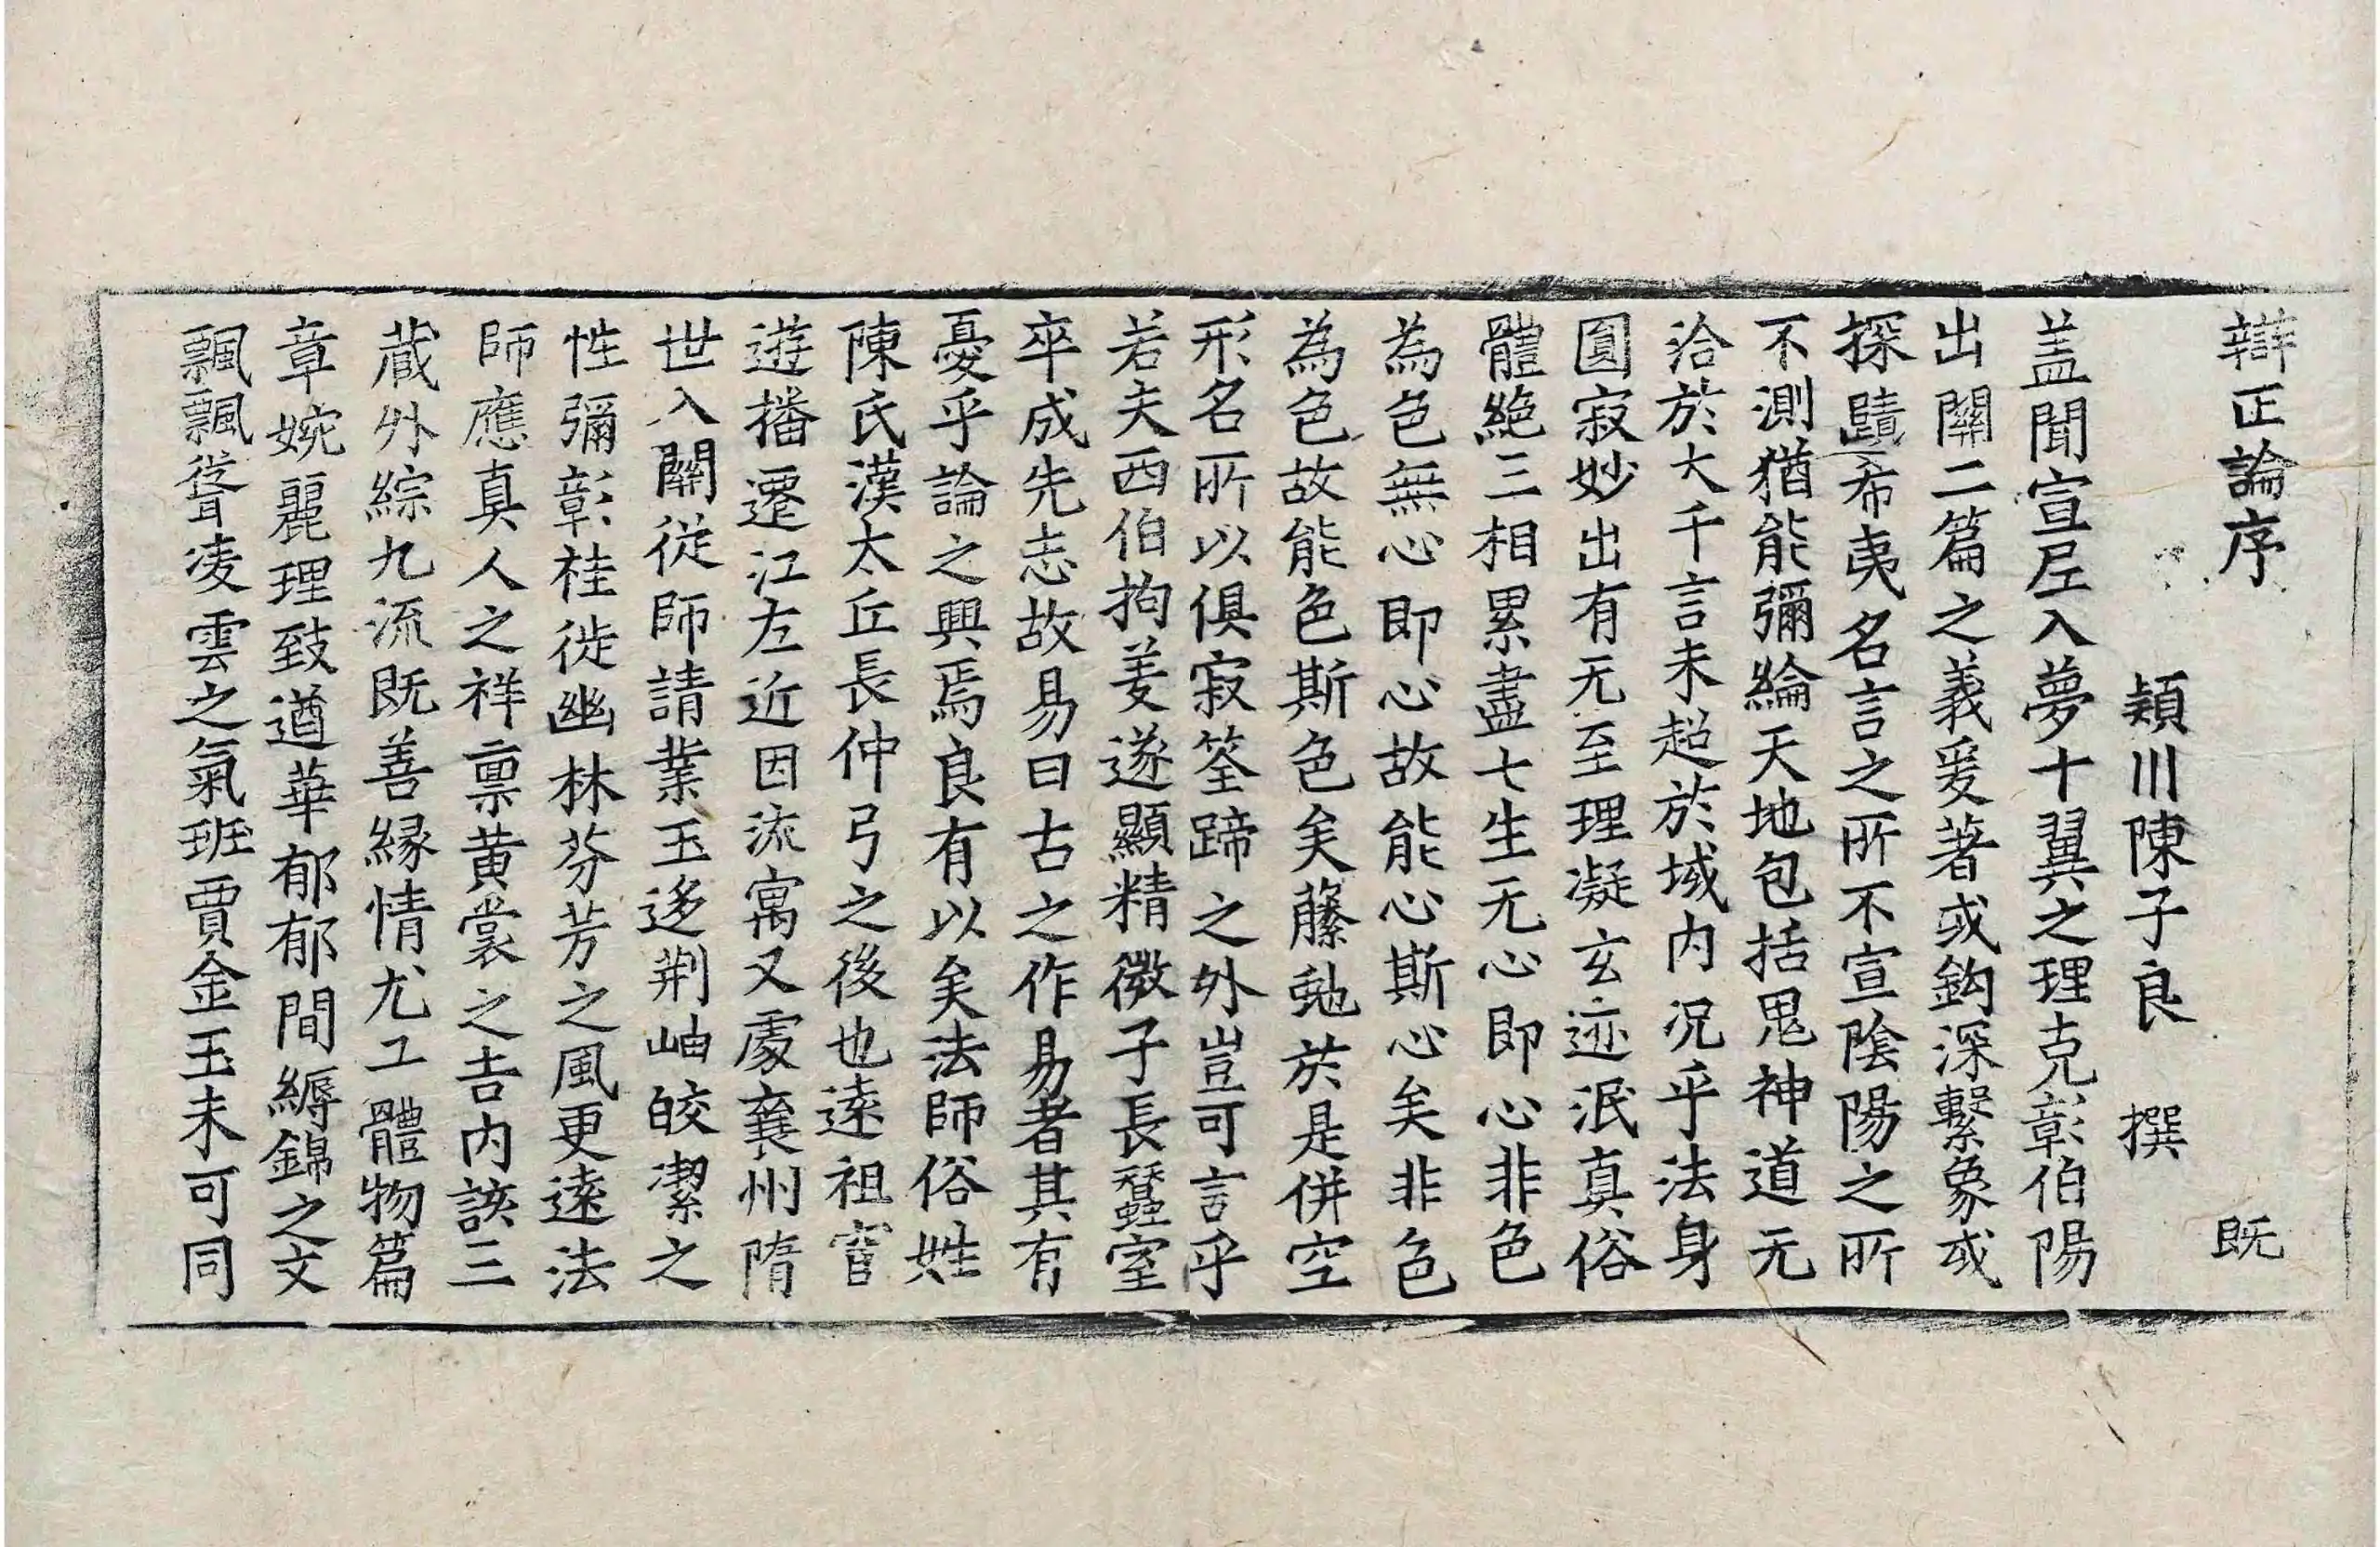 辯正論序 既
穎川陳子良 撰
盖聞宣尼入夢十翼之理克彰伯陽
出關二篇之義爰著或鈎深繫象或
探賾希夷名言之所不宣陰陽之所
不測猶能彌綸天地包括鬼神道无
洽於大千言未超於域内況乎法身
圓寂妙出有无至理凝玄迹泯真俗
體絶三相累盡七生无心即心非色
為色無心即心故能心斯心矣非色
為色故能色斯色矣藤虵於是併空
形名所以俱寂筌蹄之外豈可言乎
若夫西伯拘羑遂顯精微子長蠶室
卒成先志故易曰古之作易者其有
憂乎論之興焉良有以矣法師俗姓
陳氏漢太丘長仲弓之後也逺祖官
遊播遷江左近因流寓又處襄州隋
世入關從師請業玉迻荆岫皎潔之
性彌彰桂徙幽林芬芳之風更逺法
師應真人之祥禀黄裳之吉内該三
蔵外綜九流既善縁情尤工體物篇
章婉麗理致遒華郁郁間縟錦之文
飄飄聳凌雲之氣班賈金玉未可同